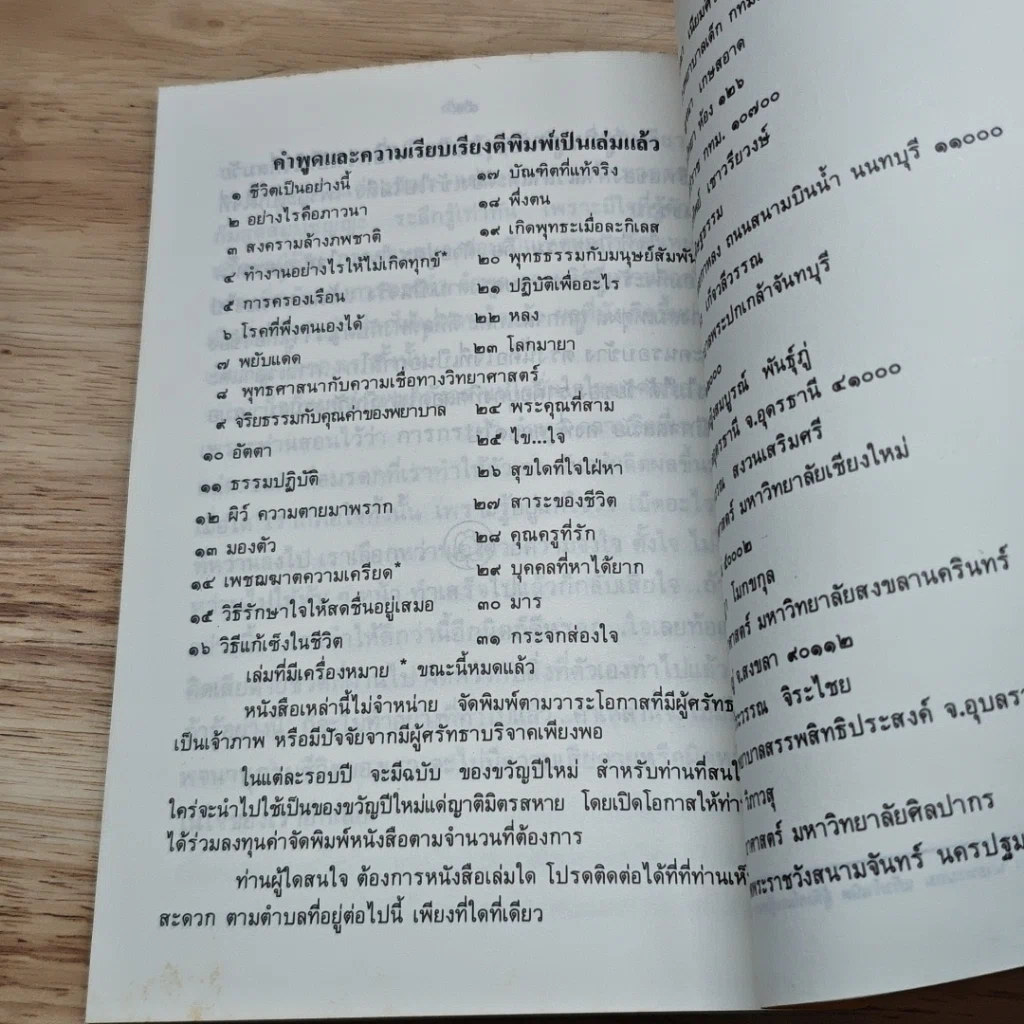 คำพูดและความเรียบเรียงตีพิมพ์เป็นเล่มแล้ว
๑ ชีวิตเป็นอย่างนี้
๒ อย่างไรคือภาวนา
๓ สงครามล้างภพชาติ
๔ ทำงานอย่างไรให้ไม่เกิดทุกข์*
๕ การครองเรือน
๖ โรคที่พึ่งตนเองได้
๗ พยับแดด
๘ พุทธศาสนากับความเชื่อทางวิทยาศาสตร์
๙ จริยธรรมกับคุณค่าของพยาบาล
๑๐ อัตตา
๑๑ ธรรมปฏิบัติ
๑๒ ผิว์ ความตายมาพราก
๑๓ มองตัว
๑๔ เพชฌฆาตความเครียด*
๑๕ วิธีรักษาใจให้สดชื่นอยู่เสมอ
๑๖ วิธีแก้เซ็งในชีวิต
๑๗ บัณฑิตที่แท้จริง
๑๘ พึ่งตน
๑๙ เกิดพุทธะเมื่อละกิเลส
๒๐ พุทธธรรมกับมนุษย์สัมพัน
๒๑ ปฏิบัติเพื่ออะไร
๒๒ หลง
๒๓ โลกมายา
๒๔ พระคุณที่สาม
๒๕ ไข...ใจ
๒๖ สุขใดที่ใจใฝ่หา
๒๗ สาระของชีวิต
๒๘ คุณครูที่รัก
๒๙ บุคคลที่หาได้ยาก
๓๐ มาร
๓๑ กระจกส่องใจ
เล่มที่มีเครื่องหมาย * ขณะนี้หมดแล้ว
หนังสือเหล่านี้ไม่จำหน่าย จัดพิมพ์ตามวาระโอกาสที่มีผู้ศรัทธ
เป็นเจ้าภาพ หรือมีปัจจัยจากมีผู้ศรัทธาบริจาคเพียงพอ
ในแต่ละรอบปี จะมีฉบับ ของขวัญปีใหม่ สำหรับท่านที่สนใ
ใคร่จะนำไปใช้เป็นของขวัญปีใหม่แด่ญาติมิตรสหาย โดยเปิดโอกาสให้ท่า
ได้ร่วมลงทุนค่าจัดพิมพ์หนังสือตามจำนวนที่ต้องการ
ท่านผู้ใดสนใจ ต้องการหนังสือเล่มใด โปรดติดต่อได้ที่ที่ท่านเห็
สะดวก ตามตำบลที่อยู่ต่อไปนี้ เพียงที่ใดที่เดียว
เกษสอาด
ห้อง ๑๒๖
กทม. ๑๐๗๐๐
เชาวรียวงษ์
ถนนสนามบินน้ำ นนทบุรี ๑๑๐๐๐
พระปกเกล้าจันทบุรี
สมบูรณ์ พันธุ์ภู่
จ.อุดรธานี ๔๑๐๐๐
สงวนเสริมศรี
มหาวิทยาลัยเชียงใหม่
๕๐๐๐๒
โมกขกุล
มหาวิทยาลัยสงขลานครินทร์
จ.สงขลา ๙๐๑๑๒
จิระไชย
สรรพสิทธิประสงค์ จ.อุบลรา
วิภาวสุ
มหาวิทยาลัยศิลปากร
พระราชวังสนามจันทร์ นครปฐม